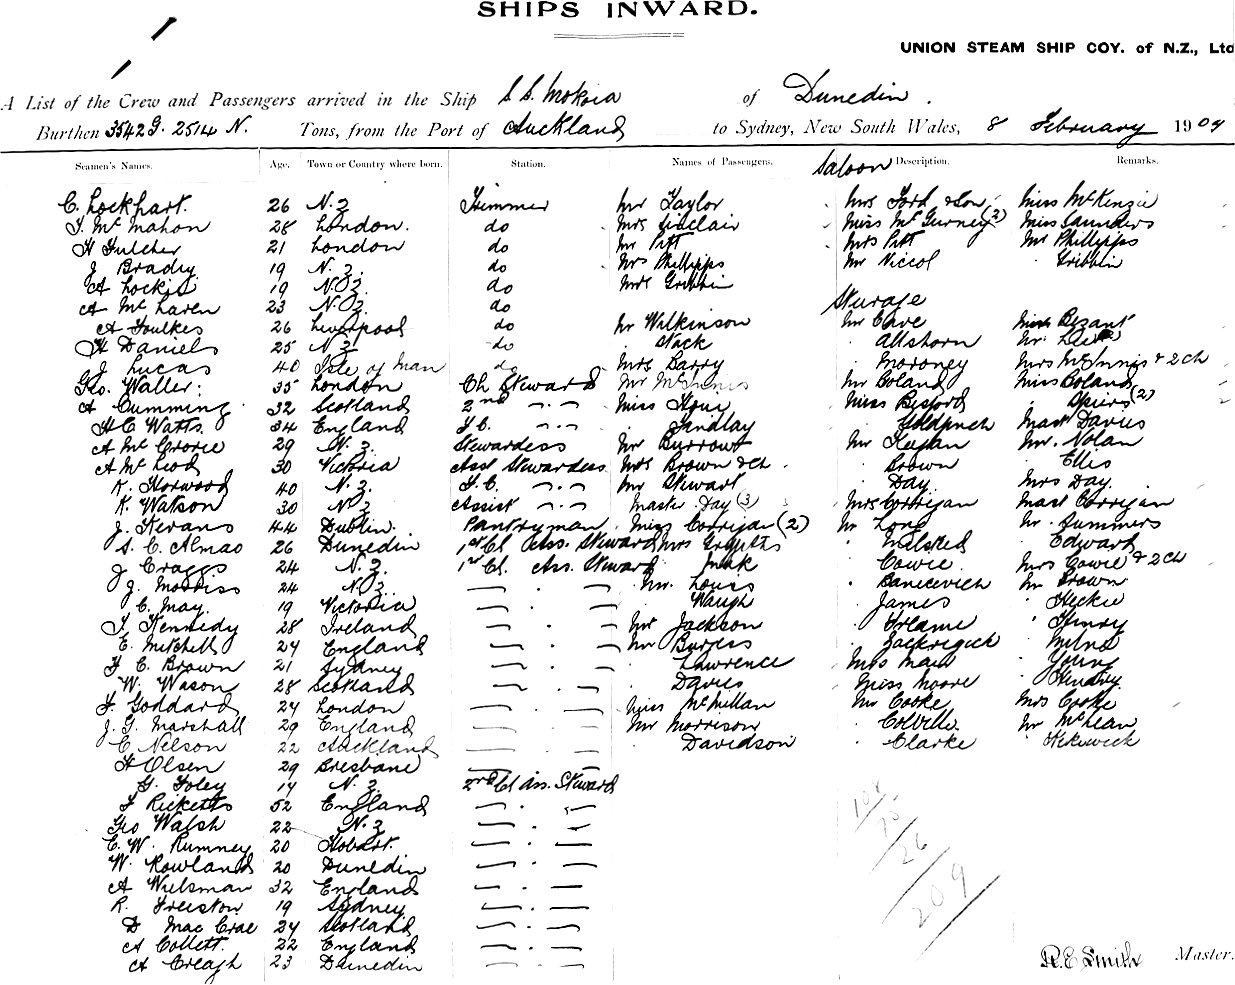 SHIPS INWARD.
UNION STEAM SHIP COY. of N.Z., Ltd
A List of the Crew and Passengers arrived in the Ship S.S. Mokoia of Dunedin.
Burthen 3542 G. 2514 N. Tons, from the Port of Auckland to Sydney, New South Wales, 8 February 1904
Seamen's Names. Age. Town or Country where born. Station. Names of Passengers. Saloon Description. Remarks.
C. Lockhart. 26 N.Z Trimmer Mr Taylor Mrs Ford & Son Miss McKenzie
T. McMahon 28 London. do Mrs Sinclair Miss McGurney (2) Miss Saunders
H Fulcher 21 London do Mr Pitt Mrs Pitt Mr Phillipps
J Brady 19 N.Z. do Mrs Phillipps Mr Niccol Gribbin
A Lockie 19 N.Z. do Mrs Gribbin
A McLaren 23 N.Z. do Steerage
A Foulkes 26 Liverpool do Mr Wilkinson Mr Cave Miss Bezant
H Daniels 25 N.Z do Stack Allshorn Mr
J Lucas 40 Isle of Man do Mrs Barry Moroney Mrs McInnis & 2 Ch
Geo. Waller. 35 London Ch Steward Mr McInnis Mr Boland Miss Boland
A Cumming 32 Scotland 2nd " " Miss Miss Besford Spiers (2)
H C Watts. 34 England F.C. " " Findlay Goldfinch Mast Davies
A McCrorie 29 N.Z. Stewardess Mr Burrows Mr Fegan Mr. Nolan
A McLeod 30 Victoria Asst Stewardess Mrs Brown & Ch. Brown Ellis
K. Horwood 40 N.Z. F.C. " " Mr Stewart Day. Mrs Day.
K. Watson 30 N.Z Assist " " Master Day (3) Mrs Corrigan Mast Corrigan
J. Kevans 44 Dublin. Pantryman Miss Corrigan (2) Mr Long Mr. Summers
S. C. Almao 26 Dunedin 1st Cl. Ass. Steward Mrs Griffiths Milsted Edwards
J Craggs 24 N.Z. 1st Cl. Ass. Steward Cowie. Mrs Cowie & 2 Ch
J. Morriss 24 N.Z. — . — Mr. Louis Banicevich Mr Brown
C. May. 19 Victoria — . — Waugh James Heckie
T. Kennedy 28 Ireland — . — Mr Jackson Freame Henry
E. Mitchell 24 England — . — Mr Burgess Milne
F C. Brown 21 Sydney — . — Lawrence Mrs Young
W. Wason 28 Scotland — . — Davies Miss Moore Hendry
F. Goddard 24 London — . — Miss McMillan Mr Cooke Mrs Cooke
J. G. Marshall 29 England — . — Mr Morrison Colville. Mr McLean
C Nelson 22 Auckland — . — Davidson Clarke Kekewick
H Olsen 29 Brisbane — . —
G. Foley 14 N.Z. 2nd Cl Ass. Steward
F Ricketts 52 England — . —
Geo Walsh 22 N.Z — . —
C. W. Rumney 20 Hobart. — . —
W. Rowland 20 Dunedin — . —
A Wulsman 32 England — . —
R. Freeston 19 Sydney — . —
D MacCrae 24 Scotland — . —
A Collett. 22 England — . —
A Creagh 23 Dunedin — . —
26
209
R. E. Smith Master.